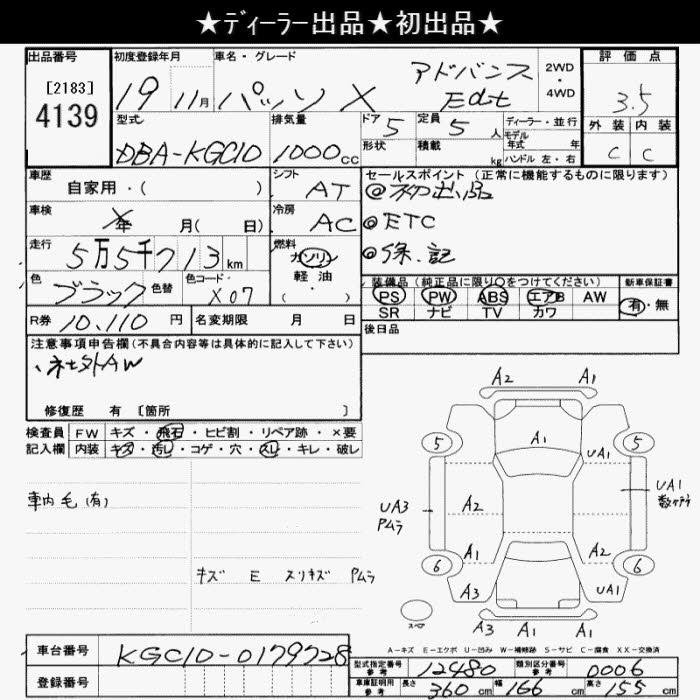 ★ディーラー出品★初出品★
出品番号 初度登録年月 車名・グレード 評価点
[2183] 19 11月 パッソ X アドバンス Edit 2WD・4WD 3.5
4139
型式 排気量 ドア 定員 ディーラー・並行 外装 内装
DBA-KGC10 1000cc 5 5人 モデル年式 年 C C
形状 積載 kg ハンドル 左・右
車歴 シフト セールスポイント (正常に機能するものに限ります)
自家用・( ) AT @初出品
車検 冷房 @ETC
年 月( 日) AC @保.記
走行 燃料
5万5千713km ガソリン
軽・油
( )
色 色替 色コード 装備品 (純正品に限り○をつけてください) 新車保証書
ブラック X07 PS PW ABS エアB AW 有・無
SR ナビ TV カワ
R券 10,110円 名変期限 月 日 後日品
注意事項申告欄(不具合内容等は具体的に記入して下さい)
、社外AW
修復歴 有 [箇所 ]
検査員 FW キズ・飛石・ヒビ割・リペア跡・×要
記入欄 内装 キズ・汚レ・コゲ・穴・スレ・キレ・破レ
車内毛(有)
キズ E スリキズ Pムラ
A2 A1
A1
5 5
UA1
UA3 A2 UA1
Pムラ 数ヶ所
A1 A2
6 6
A3 UA1
スペア
A3 A1 A1
A-キズ E-エクボ U-凹み W-補修跡 S-サビ C-腐食 XX-交換済
車台番号 KGC10-0179728
登録番号
型式指定番号 参考 12480 類別区分番号 参考 0006
車庫証明用 参考 長さ 360cm 幅 166cm 高さ 155cm